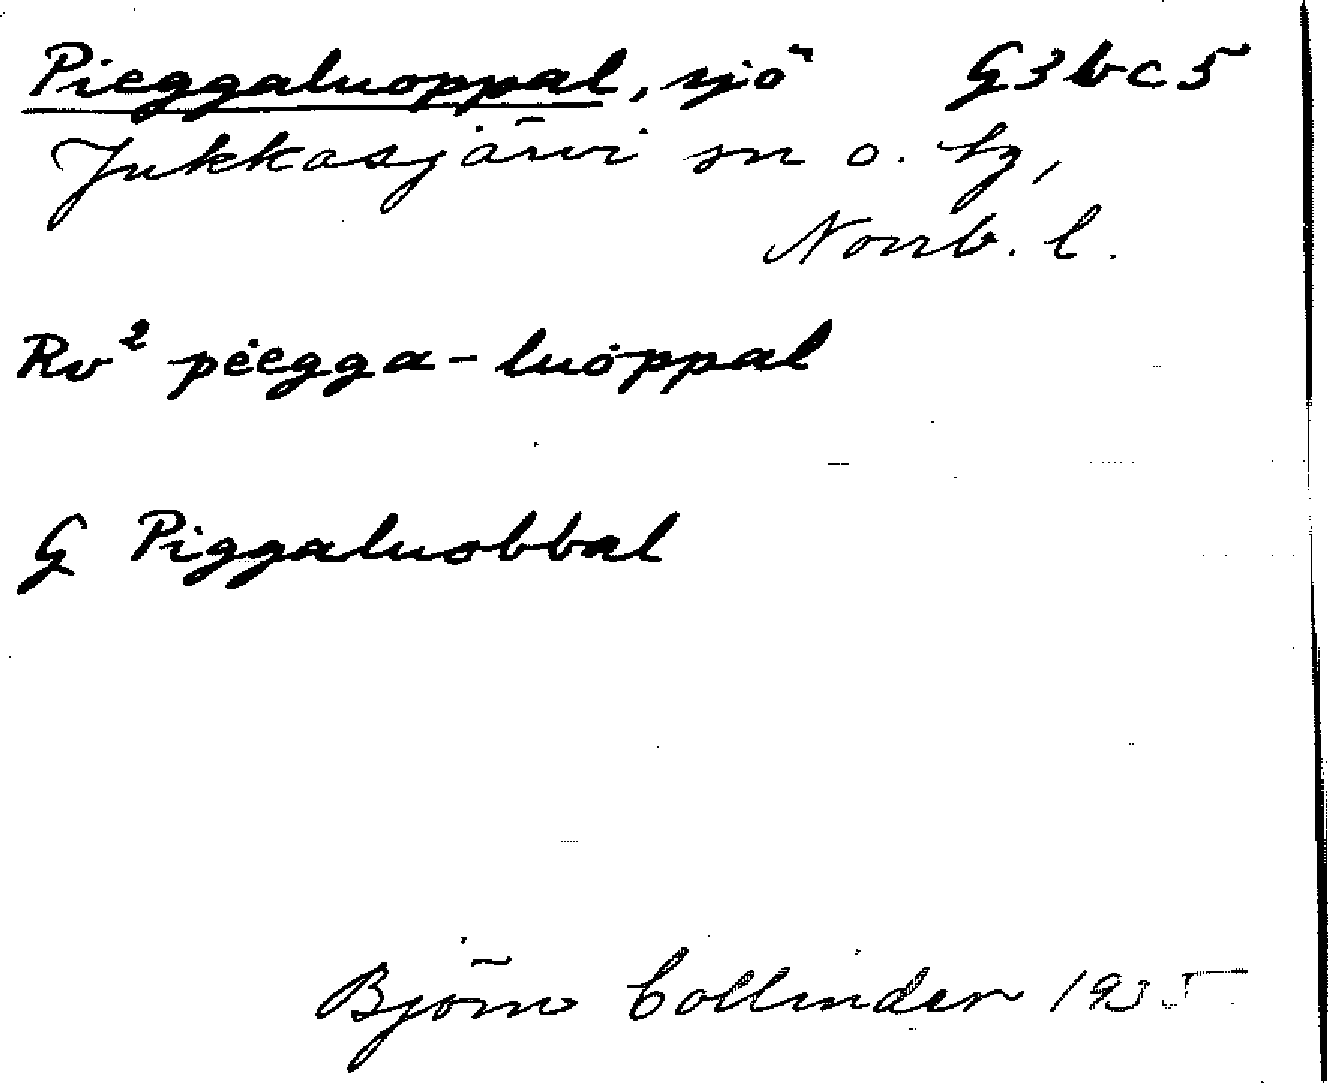 Pieggaluoppal, sjö G3bc5
Jukkasjärvi sn o. tg,
Norrb. l.
Rv² pėegga-luȯppal
G Piggaluobbal
Björn Collinder 1935